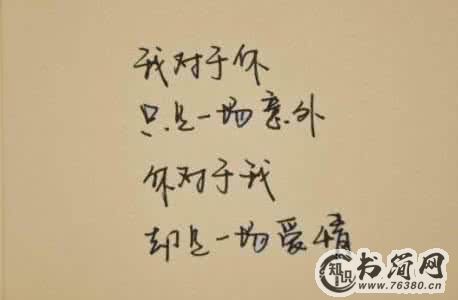 我对于你
只是一场意外
你对于我
却是一场爱情
知识
书简网
www.76380.cn